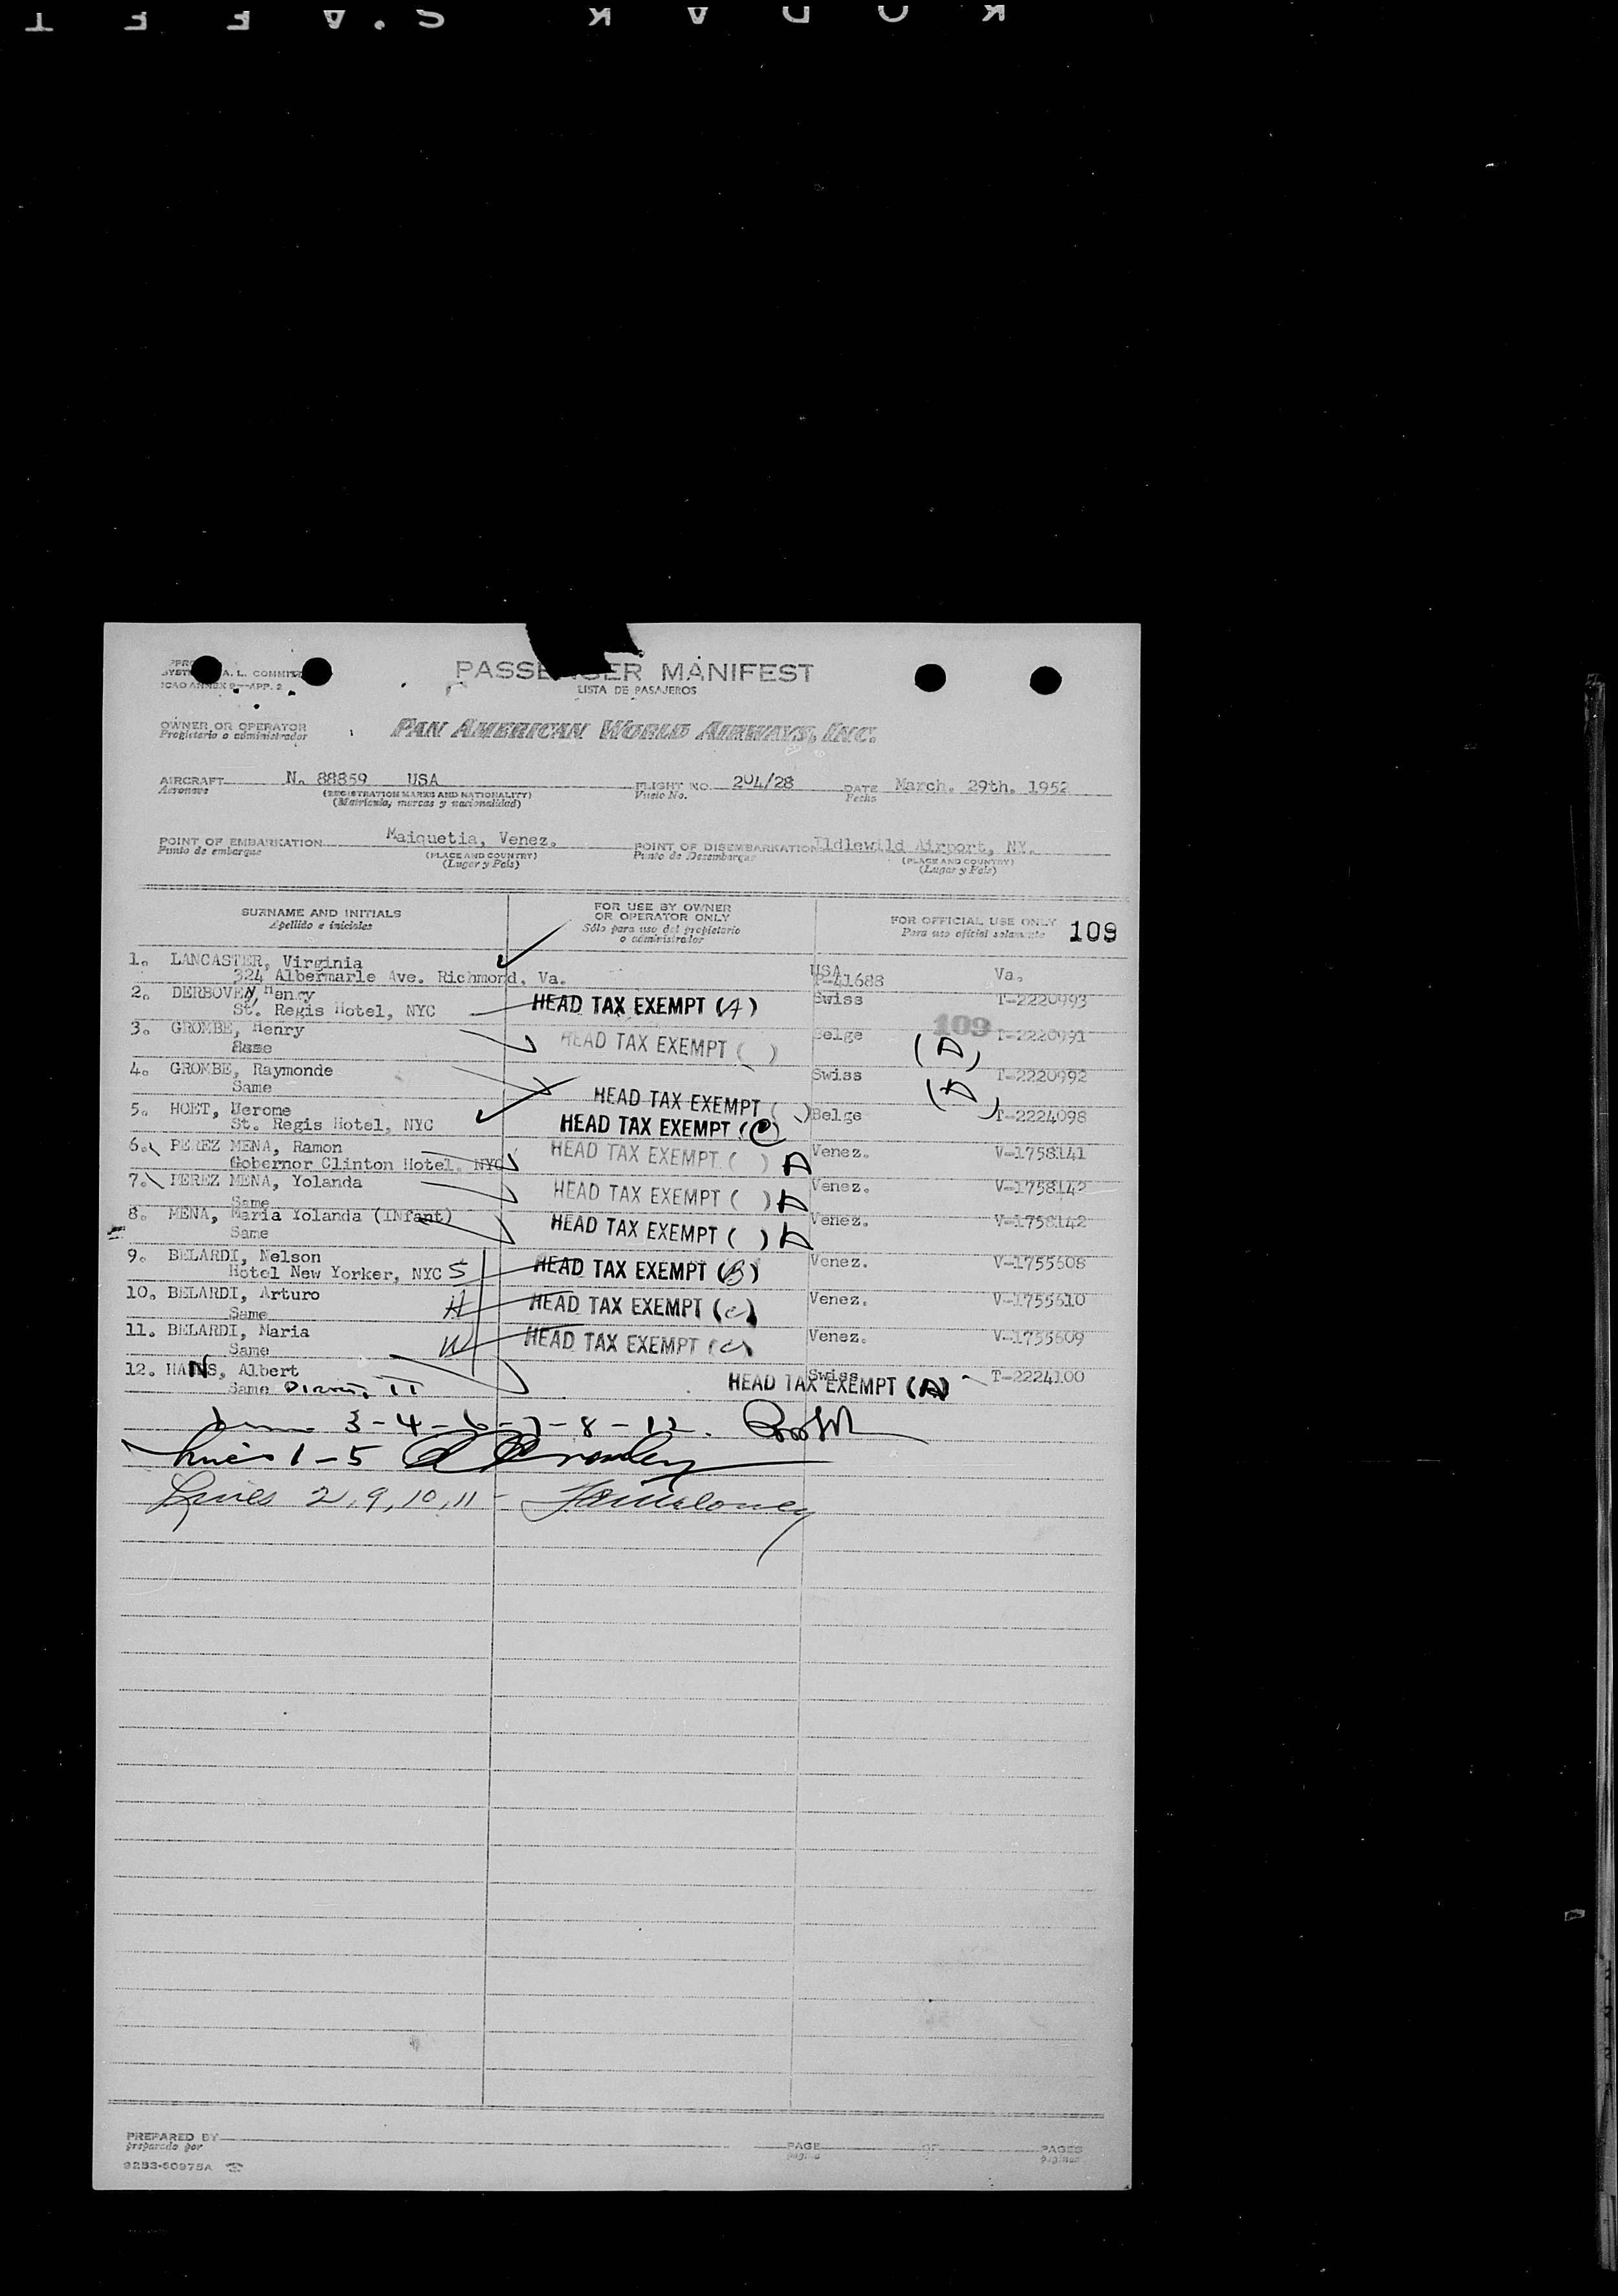 KODAK S.AFET
PASSENGER MANIFEST
LISTA DE PASAJEROS
A. L. COMMIT
ICAO ANNEX 9—APP. 2
OWNER OR OPERATOR
Propietario o administrador
PAN AMERICAN WORLD AIRWAYS, INC.
AIRCRAFT N. 88859 USA FLIGHT NO. 204/28 DATE March. 29th. 1952
Aeronave (REGISTRATION MARKS AND NATIONALITY) Vuelo No. Fecha
(Matrícula, marcas y nacionalidad)
POINT OF EMBARKATION Maiquetia, Venez. POINT OF DISEMBARKATION Ildlewild Airport, NY.
Punto de embarque (PLACE AND COUNTRY) Punto de Desembarque (PLACE AND COUNTRY)
(Lugar y País) (Lugar y País)
SURNAME AND INITIALS FOR USE BY OWNER OR OPERATOR ONLY FOR OFFICIAL USE ONLY 109
Apellido e iniciales Sólo para uso del propietario o administrador Para uso oficial solamente
1. LANCASTER, Virginia USA Va.
324 Albermarle Ave. Richmond, Va. P-41688
2. DERBOVEN, Henry HEAD TAX EXEMPT (A) Swiss T-2220993
St. Regis Hotel, NYC
109
3. GROMBE, Henry HEAD TAX EXEMPT ( ) Belge (D) T-2220991
Same
4. GROMBE, Raymonde Swiss (D) T-2220992
Same HEAD TAX EXEMPT ( )
5. HOET, Jerome Belge T-2224098
St. Regis Hotel, NYC HEAD TAX EXEMPT (C)
6. PEREZ MENA, Ramon HEAD TAX EXEMPT ( ) A Venez. V-1758141
Gobernor Clinton Hotel, NYC
7. PEREZ MENA, Yolanda HEAD TAX EXEMPT ( ) A Venez. V-1758142
Same
8. MENA, Maria Yolanda (INfant) HEAD TAX EXEMPT ( ) A Venez. V-1758142
Same
9. BELARDI, Nelson HEAD TAX EXEMPT (B) Venez. V-1755608
Hotel New Yorker, NYC S
10. BELARDI, Arturo H HEAD TAX EXEMPT (C) Venez. V-1755610
Same
11. BELARDI, Maria W HEAD TAX EXEMPT (C) Venez. V-1755609
Same
12. HANS, Albert HEAD TAX EXEMPT (A) Swiss T-2224100
Same
3-4-6-7-8-12.
Lines 1-5
Lines 2, 9, 10, 11 -
PREPARED BY PAGE OF PAGES
preparado por página páginas
9253-50975A